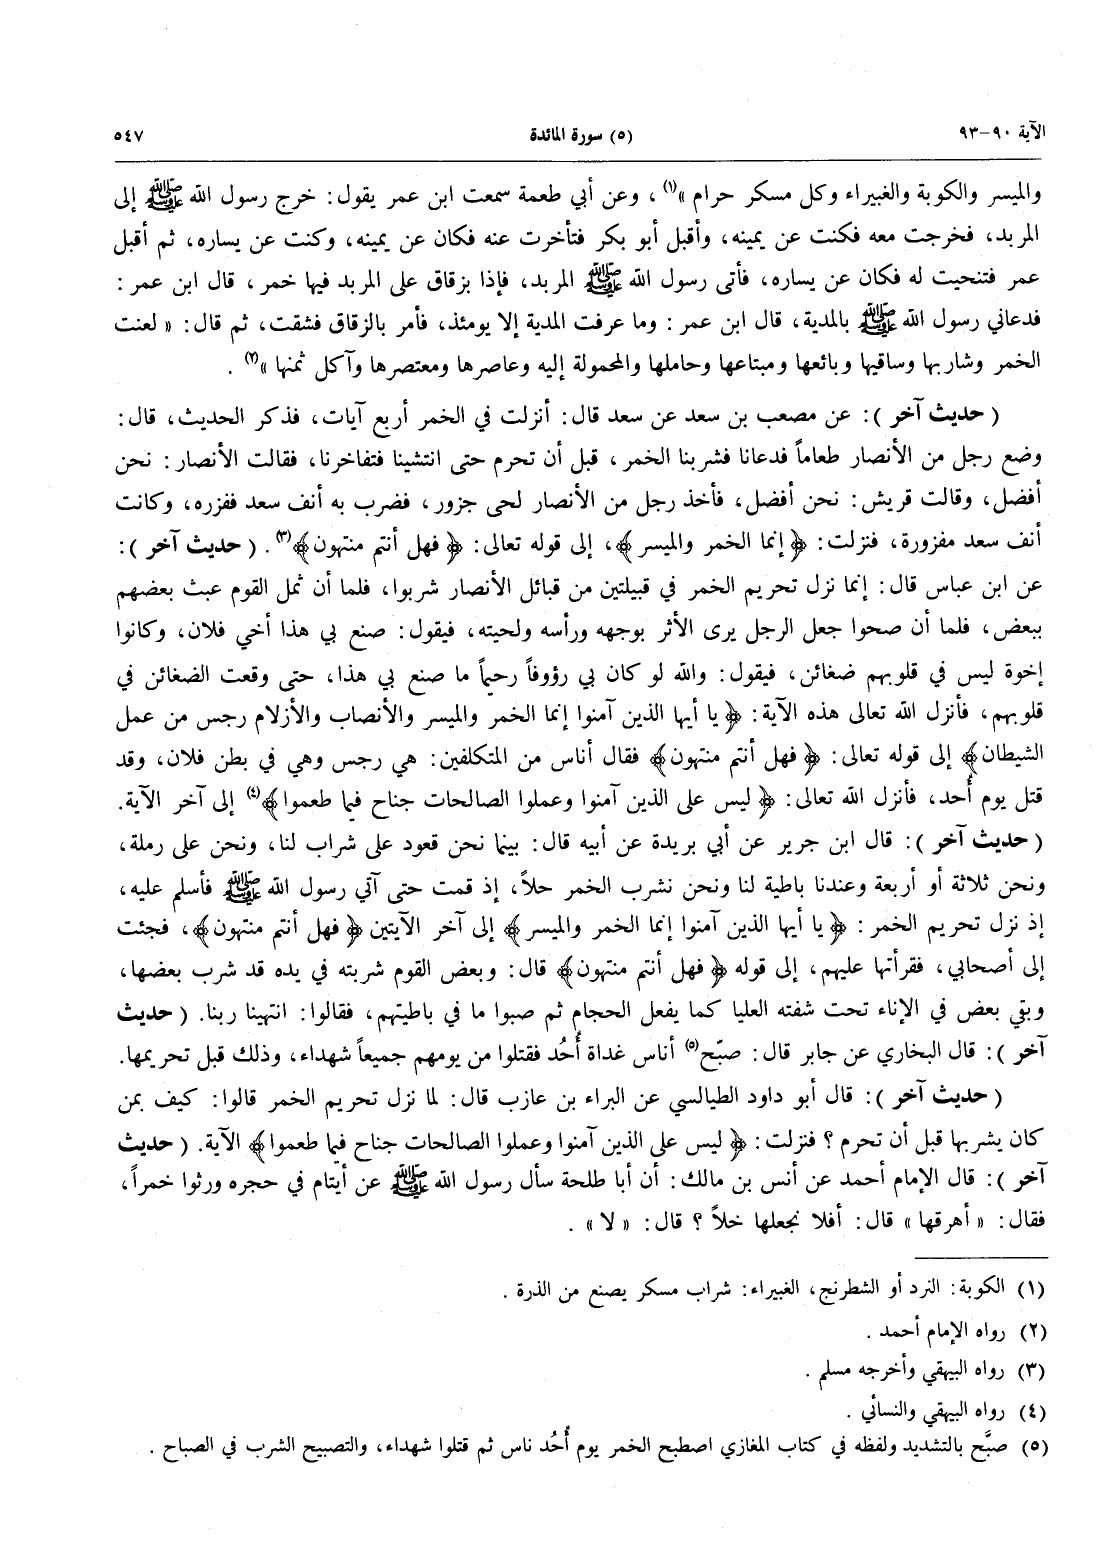 الآية ٩٠-٩٣
(٥) سورة المائدة
٥٤٧
والميسر والكوبة والغبيراء وكل مسكر حرام »(١)، وعن أبي طعمة سمعت ابن عمر يقول: خرج رسول الله ﷺ إلى
المربد، فخرجت معه فكنت عن يمينه، وأقبل أبو بكر فتأخرت عنه فكان عن يمينه، وكنت عن يساره، ثم أقبل
عمر فتنحيت له فكان عن يساره، فأتى رسول الله ﷺ المربد، فإذا بزقاق على المربد فيها خمر، قال ابن عمر:
فدعاني رسول الله ﷺ بالمدية، قال ابن عمر: وما عرفت المدية إلا يومئذ، فأمر بالزقاق فشقت، ثم قال: « لعنت
الخمر وشاربها وساقيها وبائعها ومبتاعها وحاملها والمحمولة إليه وعاصرها ومعتصرها وآكل ثمنها »(٢).
( حديث آخر ): عن مصعب بن سعد عن سعد قال: أنزلت في الخمر أربع آيات، فذكر الحديث، قال:
وضع رجل من الأنصار طعاماً فدعانا فشربنا الخمر، قبل أن تحرم حتى انتشينا فتفاخرنا، فقالت الأنصار: نحن
أفضل، وقالت قريش: نحن أفضل، فأخذ رجل من الأنصار لحى جزور، فضرب به أنف سعد ففزره، وكانت
أنف سعد مفزورة، فنزلت: ﴿ إنما الخمر والميسر ﴾، إلى قوله تعالى: ﴿ فهل أنتم منتهون ﴾(٣). ( حديث آخر ):
عن ابن عباس قال: إنما نزل تحريم الخمر في قبيلتين من قبائل الأنصار شربوا، فلما أن ثمل القوم عبث بعضهم
ببعض، فلما أن صحوا جعل الرجل يرى الأثر بوجهه ورأسه ولحيته، فيقول: صنع بي هذا أخي فلان، وكانوا
إخوة ليس في قلوبهم ضغائن، فيقول: والله لو كان بي رؤوفاً رحيماً ما صنع بي هذا، حتى وقعت الضغائن في
قلوبهم، فأنزل الله تعالى هذه الآية: ﴿ يا أيها الذين آمنوا إنما الخمر والميسر والأنصاب والأزلام رجس من عمل
الشيطان ﴾ إلى قوله تعالى: ﴿ فهل أنتم منتهون ﴾ فقال أناس من المتكلفين: هي رجس وهي في بطن فلان، وقد
قتل يوم أُحد، فأنزل الله تعالى: ﴿ ليس على الذين آمنوا وعملوا الصالحات جناح فيما طعموا ﴾(٤) إلى آخر الآية.
( حديث آخر ): قال ابن جرير عن أبي بريدة عن أبيه قال: بينما نحن قعود على شراب لنا، ونحن على رملة،
ونحن ثلاثة أو أربعة وعندنا باطية لنا ونحن نشرب الخمر حلاً، إذ قمت حتى آتي رسول الله ﷺ فأسلم عليه،
إذ نزل تحريم الخمر: ﴿ يا أيها الذين آمنوا إنما الخمر والميسر ﴾ إلى آخر الآيتين ﴿ فهل أنتم منتهون ﴾، فجئت
إلى أصحابي، فقرأتها عليهم، إلى قوله ﴿ فهل أنتم منتهون ﴾ قال: وبعض القوم شربته في يده قد شرب بعضها،
وبقي بعض في الإناء تحت شفته العليا كما يفعل الحجام ثم صبوا ما في باطيتهم، فقالوا: انتهينا ربنا. ( حديث
آخر ): قال البخاري عن جابر قال: صبّح(٥) أناس غداة أُحُد فقتلوا من يومهم جميعاً شهداء، وذلك قبل تحريمها.
( حديث آخر ): قال أبو داود الطيالسي عن البراء بن عازب قال: لما نزل تحريم الخمر قالوا: كيف بمن
كان يشربها قبل أن تحرم؟ فنزلت: ﴿ ليس على الذين آمنوا وعملوا الصالحات جناح فيما طعموا ﴾ الآية. ( حديث
آخر ): قال الإمام أحمد عن أنس بن مالك: أن أبا طلحة سأل رسول الله ﷺ عن أيتام في حجره ورثوا خمراً،
فقال: « أهرقها » قال: أفلا نجعلها خلاً؟ قال: « لا ».
(١) الكوبة: النرد أو الشطرنج، الغبيراء: شراب مسكر يصنع من الذرة.
(٢) رواه الإمام أحمد.
(٣) رواه البيهقي وأخرجه مسلم.
(٤) رواه البيهقي والنسائي.
(٥) صبَّح بالتشديد ولفظه في كتاب المغازي اصطبح الخمر يوم أُحُد ناس ثم قتلوا شهداء، والتصبيح الشرب في الصباح.